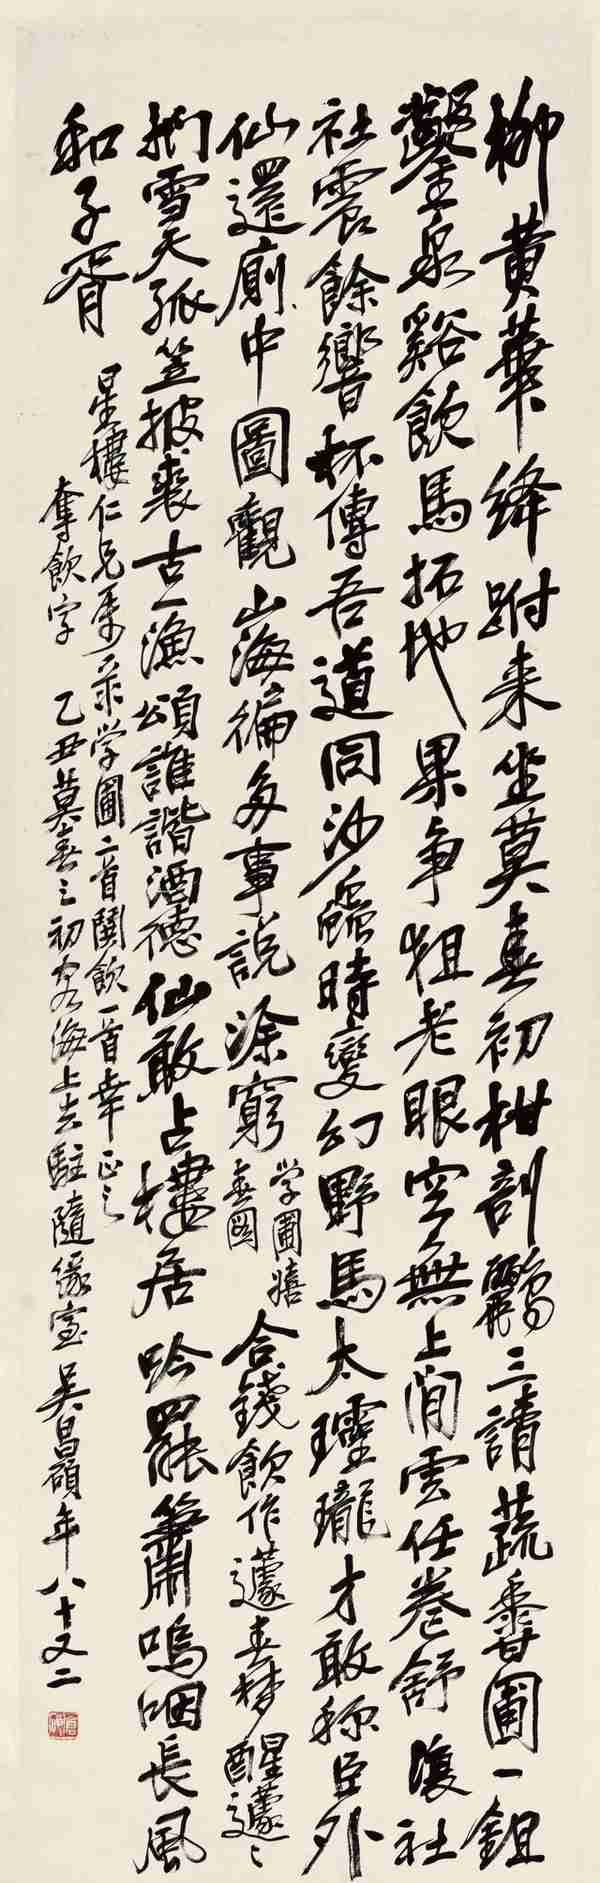 柳黃華絳跗来坐莫春初柑剖鸝三請蔬香圃一鉏
鑿泉谿飲馬拓地果爭狙老眼空無上閒雲任卷舒 後社
社震餘響杯傳吾道同沙蟲時變幻野馬太瓏才敢稱臣外
仙還廁中圖觀山海徧多事說涂窮 學圃嬉春圖 合錢飲作蘧春梦醒蘧〻
捫雪天孤笠披裘古一漁頌誰諧酒德仙敢占樓居 吟罷簫嗚咽長風
和子胥
星樓仁兄來學圃二首閧飲一首幸正之
奪飲字 乙丑莫春之初客海上去駐隨緣室吳昌碩年八十又二